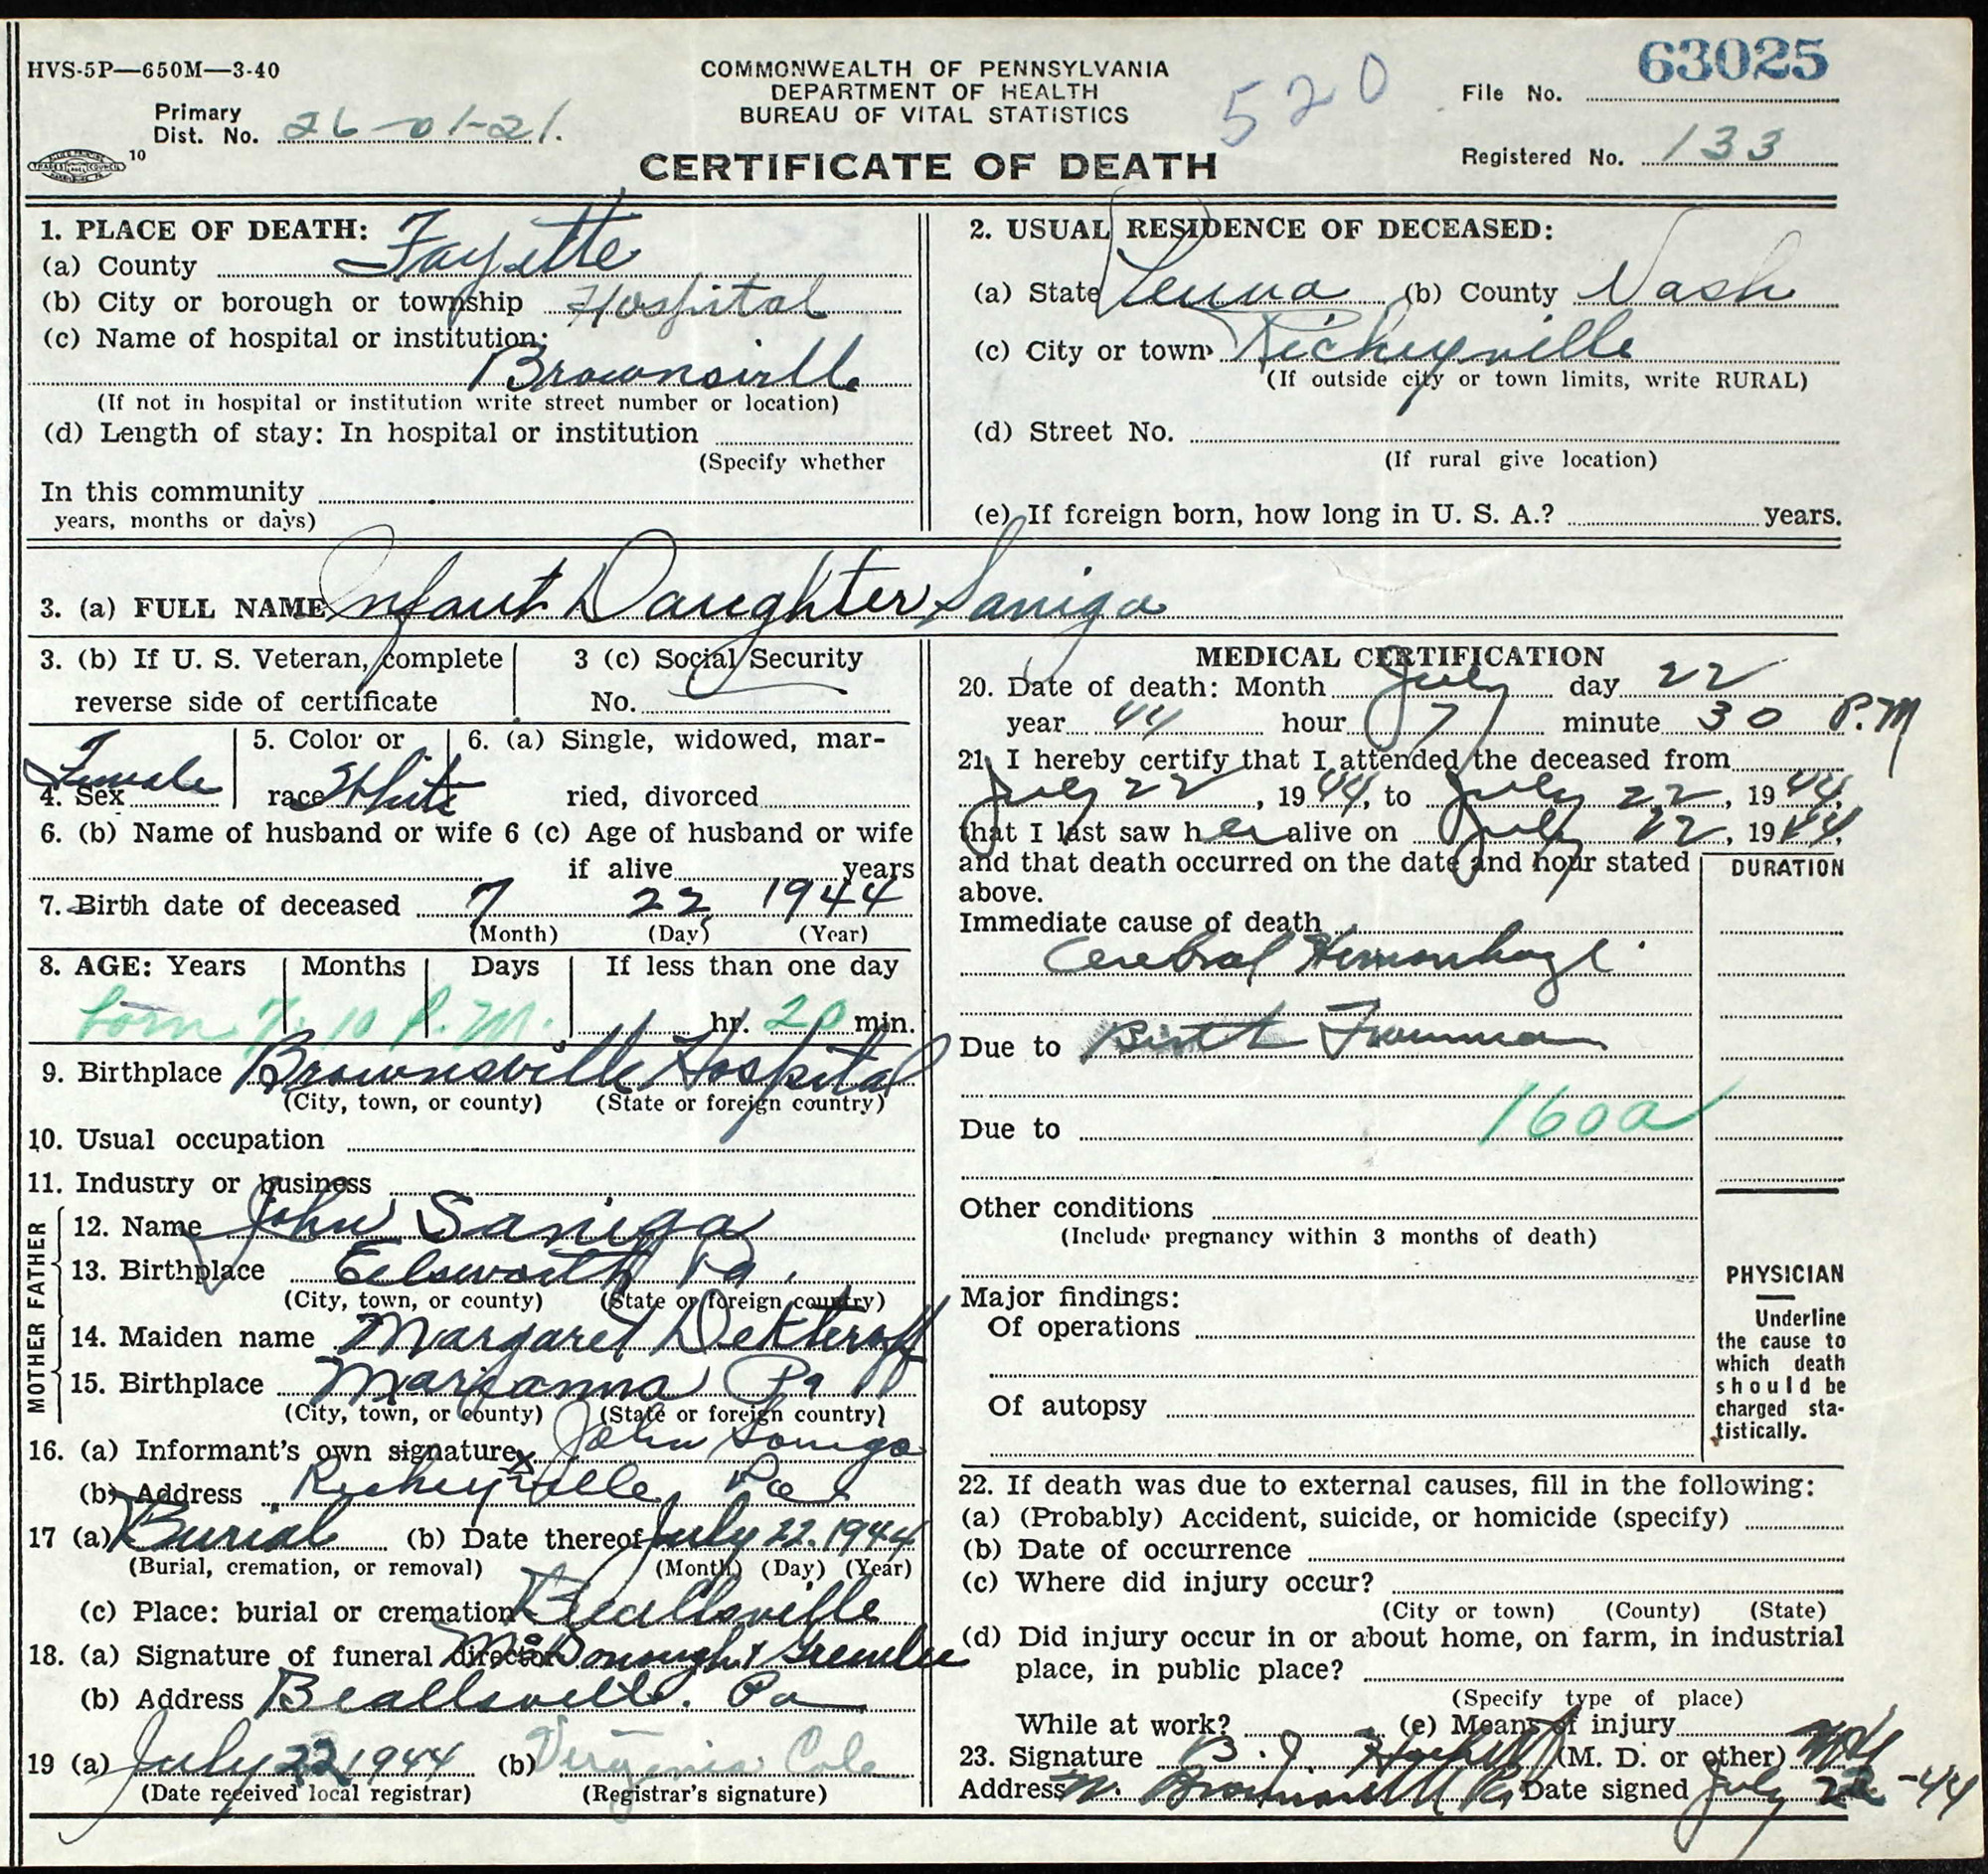 HVS-5P—650M—3-40
COMMONWEALTH OF PENNSYLVANIA
DEPARTMENT OF HEALTH
BUREAU OF VITAL STATISTICS
CERTIFICATE OF DEATH
520
63025
File No.
Primary
Dist. No. 26-01-21.
10
Registered No. 133
1. PLACE OF DEATH:
(a) County Fayette
(b) City or borough or township Hospital
(c) Name of hospital or institution:
Brownsville
(If not in hospital or institution write street number or location)
(d) Length of stay: In hospital or institution
(Specify whether
In this community
years, months or days)
2. USUAL RESIDENCE OF DECEASED:
(a) State Penna (b) County Wash
(c) City or town Richeyville
(If outside city or town limits, write RURAL)
(d) Street No.
(If rural give location)
(e) If foreign born, how long in U. S. A.? years.
3. (a) FULL NAME Infant Daughter Saniga
3. (b) If U. S. Veteran, complete
reverse side of certificate
3 (c) Social Security
No.
4. Sex Female
5. Color or
race White
6. (a) Single, widowed, mar-
ried, divorced
6. (b) Name of husband or wife 6 (c) Age of husband or wife
if alive years
7. Birth date of deceased 7 22 1944
(Month) (Day) (Year)
8. AGE: Years Months Days If less than one day
born 7:10 P.M. hr. 20 min.
9. Birthplace Brownsville Hospital
(City, town, or county) (State or foreign country)
10. Usual occupation
11. Industry or business
FATHER
12. Name John Saniga
13. Birthplace Ellsworth Pa.
(City, town, or county) (State or foreign country)
MOTHER
14. Maiden name Margaret Dekteroff
15. Birthplace Marianna Pa
(City, town, or county) (State or foreign country)
16. (a) Informant's own signature x John Saniga
(b) Address Richeyville Pa
17 (a) Burial (b) Date thereof July 22. 1944
(Burial, cremation, or removal) (Month) (Day) (Year)
(c) Place: burial or cremation Beallsville
18. (a) Signature of funeral director McDonough & Greenlee
(b) Address Beallsville. Pa
19 (a) July 22 1944 (b) Virginia Cole
(Date received local registrar) (Registrar's signature)
MEDICAL CERTIFICATION
20. Date of death: Month July day 22
year 44 hour 7 minute 30 P.M
21. I hereby certify that I attended the deceased from
July 22, 1944, to July 22, 1944,
that I last saw her alive on July 22, 1944,
and that death occurred on the date and hour stated
above.
DURATION
Immediate cause of death
Cerebral Hemorrhage
Due to Birth Trauma
160a
Due to
Other conditions
(Include pregnancy within 3 months of death)
Major findings:
Of operations
Of autopsy
PHYSICIAN
Underline
the cause to
which death
should be
charged sta-
tistically.
22. If death was due to external causes, fill in the following:
(a) (Probably) Accident, suicide, or homicide (specify)
(b) Date of occurrence
(c) Where did injury occur?
(City or town) (County) (State)
(d) Did injury occur in or about home, on farm, in industrial
place, in public place?
(Specify type of place)
While at work? (e) Means of injury
23. Signature (M. D. or other)
Address Date signed July 22-44